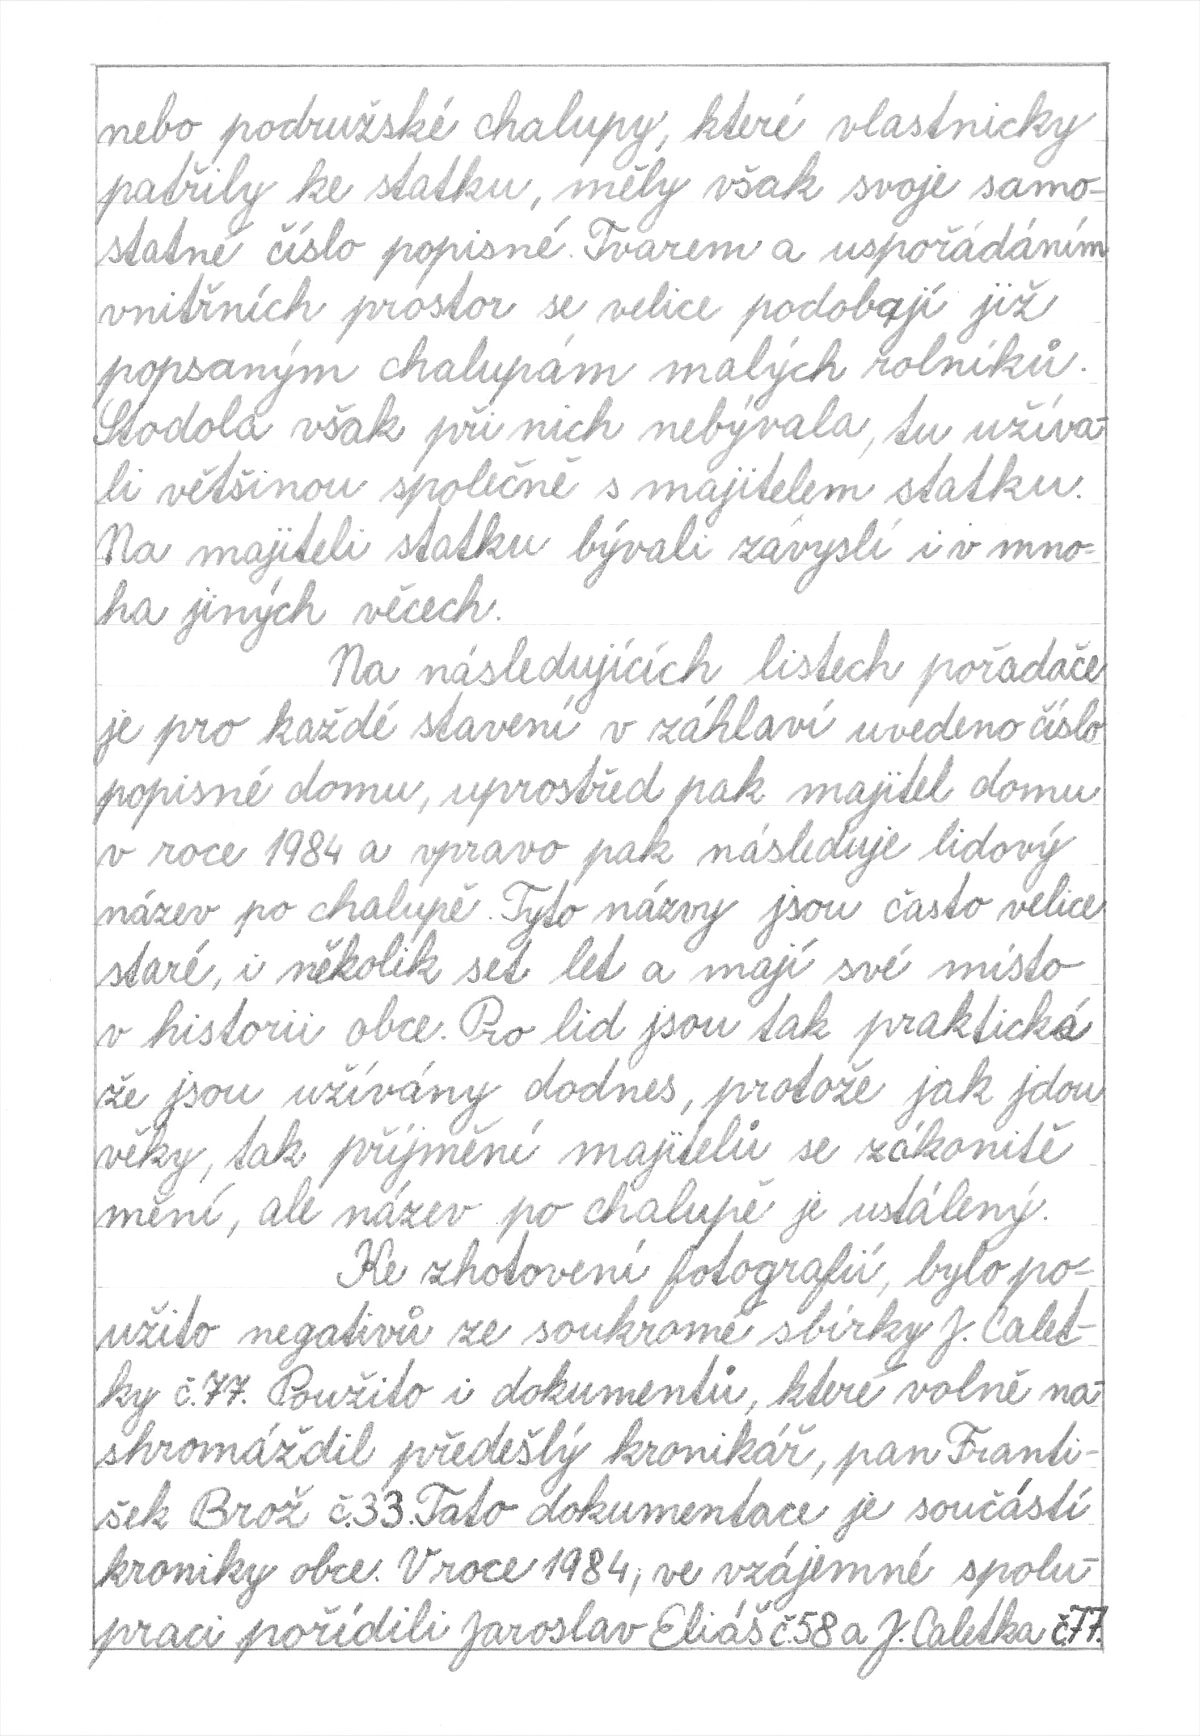 nebo podružské chalupy, které vlastnicky
patřily ke statku, měly však svoje samo-
statné číslo popisné. Tvarem a uspořádáním
vnitřních prostor se velice podobají již
popsaným chalupám malých rolníků.
Stodola však při nich nebývala, tu užíva-
li většinou společně s majitelem statku.
Na majiteli statku bývali závyslí i v mno-
ha jiných věcech.
Na následujících listech pořadače
je pro každé stavení v záhlaví uvedeno číslo
popisné domu, uprostřed pak majitel domu
v roce 1984 a vpravo pak následuje lidový
název po chalupě. Tyto názvy jsou často velice
staré, i několik set let a mají své místo
v historii obce. Pro lid jsou tak praktická
že jsou užívány dodnes, protože jak jdou
věky, tak příjmění majitelů se zákonitě
mění, ale název po chalupě je ustálený.
Ke zhotovení fotografií, bylo po-
užito negativů ze soukromé sbírky J. Calet-
ky č.77. Použito i dokumentů, které volně na-
shromáždil předešlý kronikář, pan Franti-
šek Brož č.33. Tato dokumentace je součástí
kroniky obce. V roce 1984, ve vzájemné spolu-
praci pořídili Jaroslav Eliáš č.58 a J. Caletka č.77.